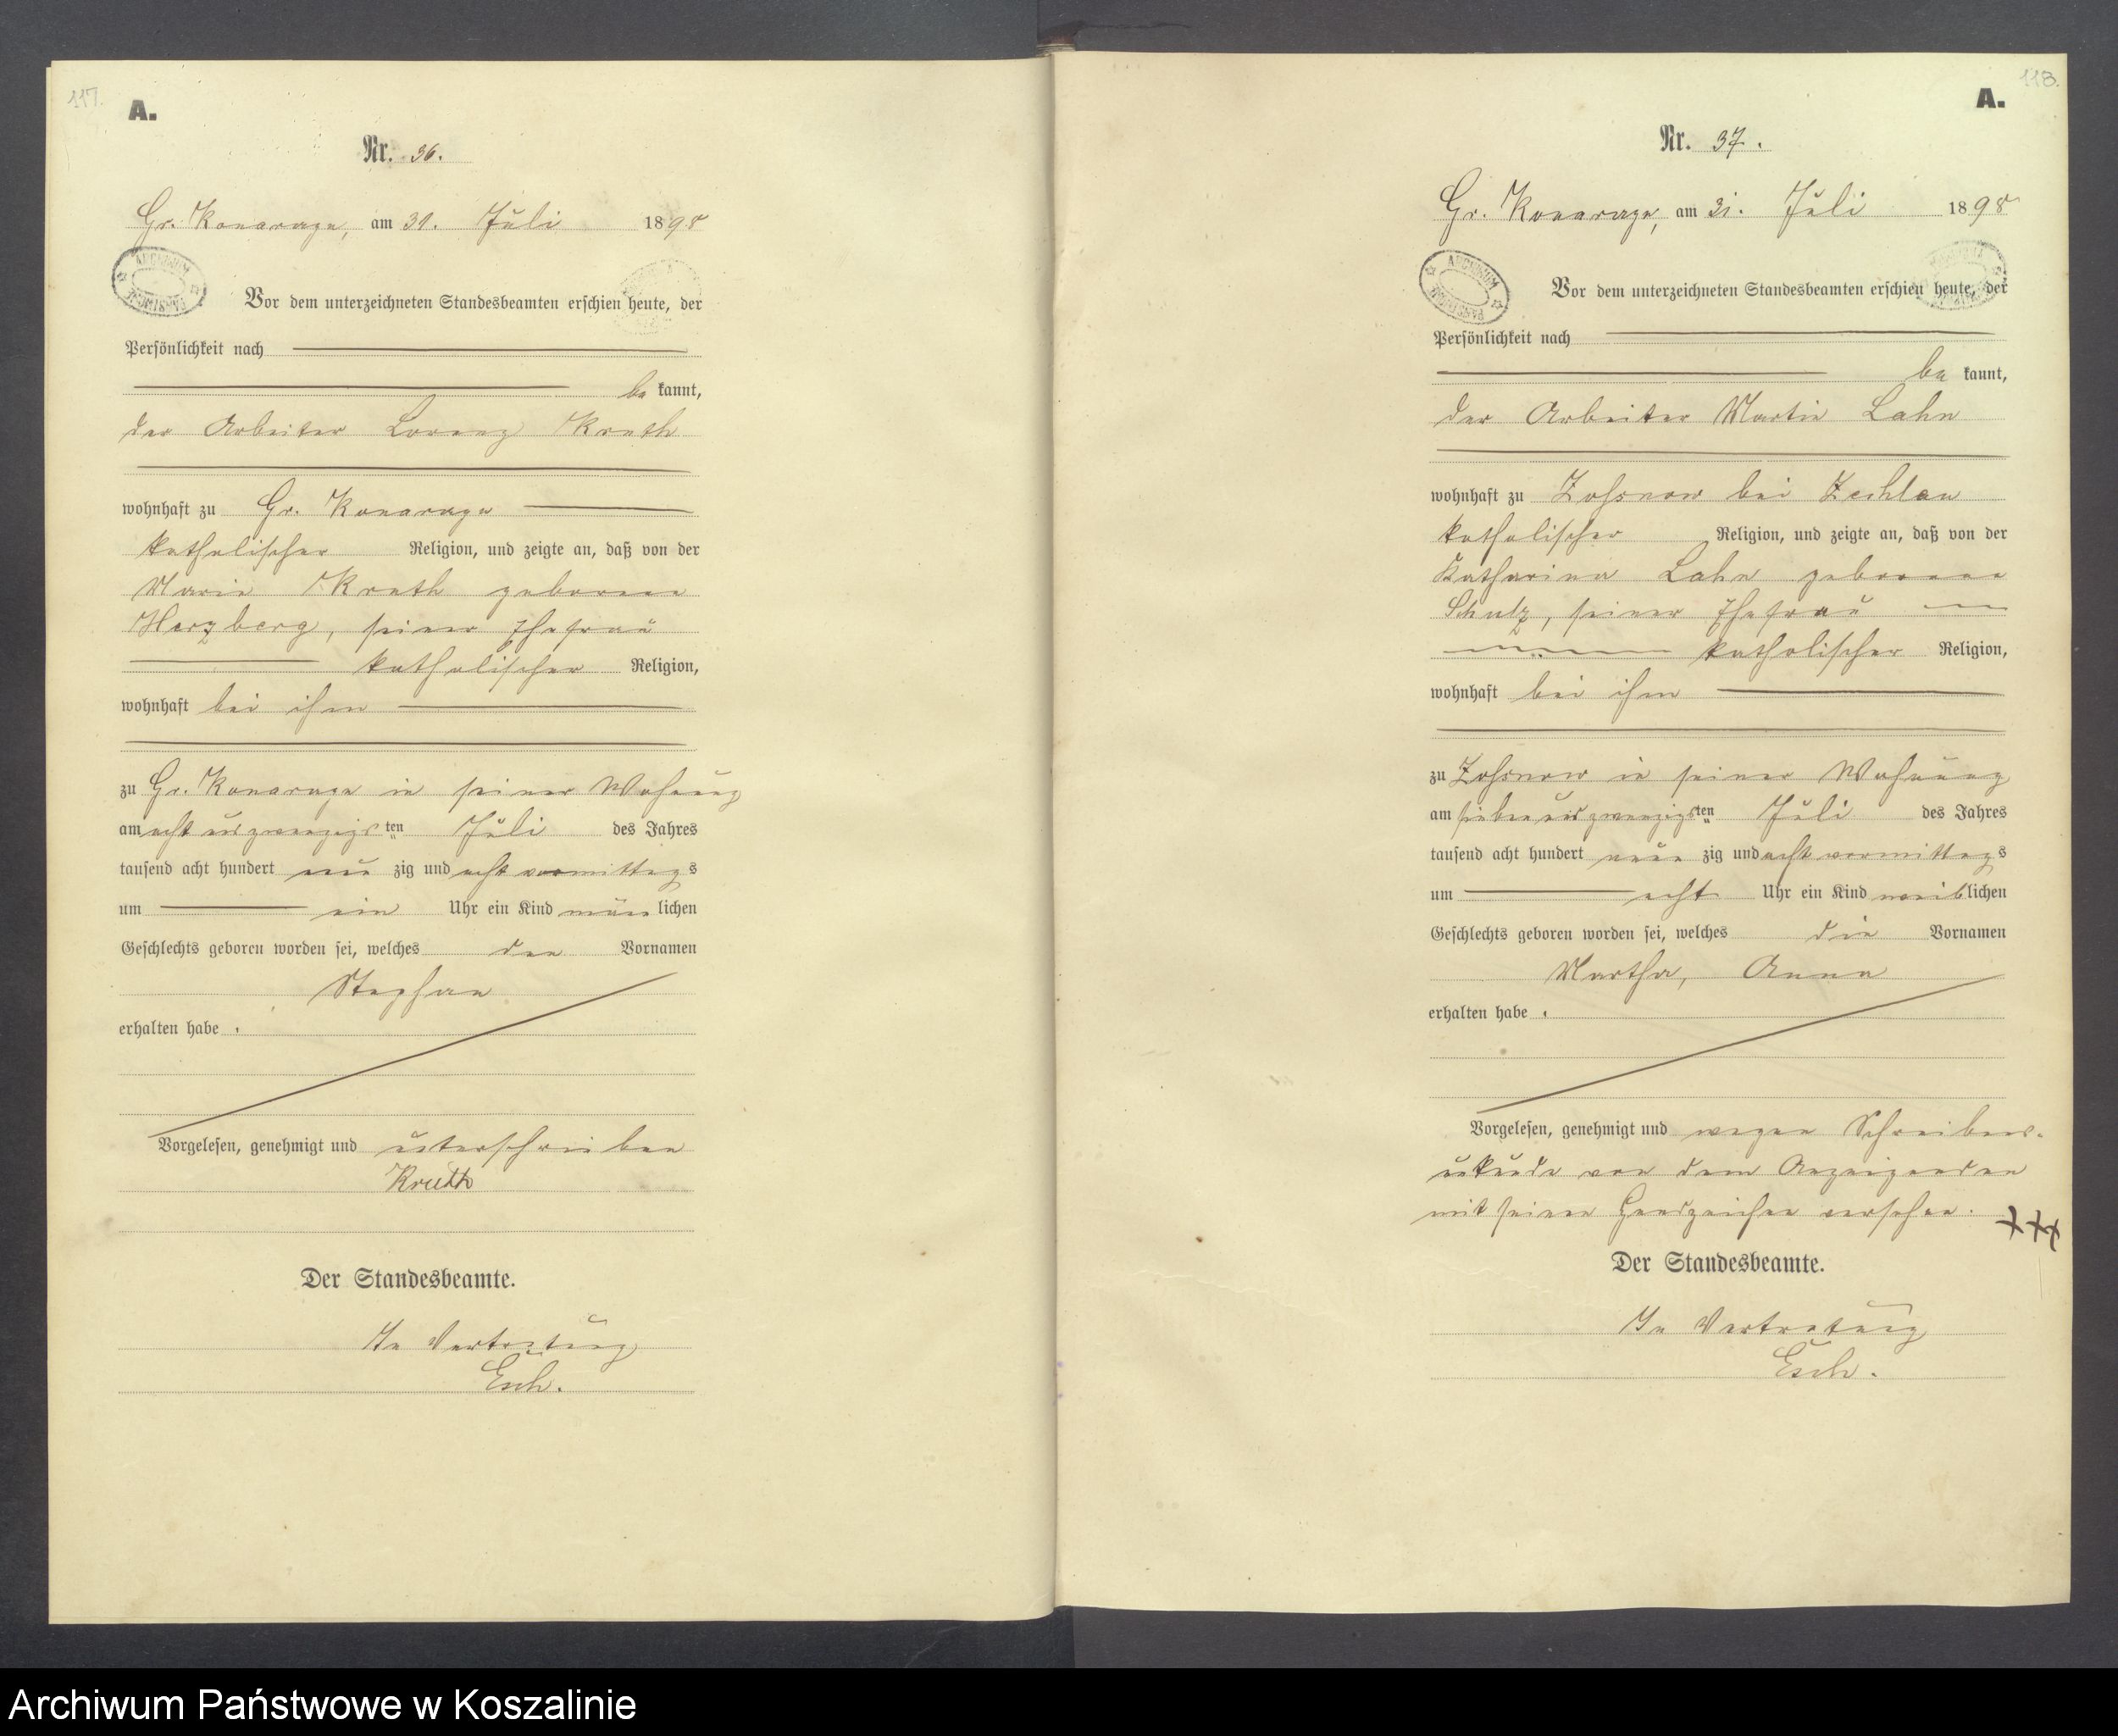 117.
A.
Nr. 36.
Gr. Konarczyn, am 31. Juli 1898
ARCHIWUM PAŃSTWOWE
Vor dem unterzeichneten Standesbeamten erschien heute, der
Persönlichkeit nach
be kannt,
der Arbeiter Lorenz Kruth
wohnhaft zu Gr. Konarczyn
katholischer Religion, und zeigte an, daß von der
Marie Kruth geborene
Herzberg, seiner Ehefrau
katholischer Religion,
wohnhaft bei ihm
zu Gr. Konarczyn in seiner Wohnung
am acht und zwanzigsten Juli des Jahres
tausend acht hundert neun zig und acht vormittags
um ein Uhr ein Kind männlichen
Geschlechts geboren worden sei, welches den Vornamen
Stephan
erhalten habe.
Vorgelesen, genehmigt und unterschrieben
Kruth
Der Standesbeamte.
In Vertretung
Esch.
118.
A.
Nr. 37.
Gr. Konarczyn, am 31. Juli 1898
ARCHIWUM PAŃSTWOWE
Vor dem unterzeichneten Standesbeamten erschien heute, der
Persönlichkeit nach
be kannt,
der Arbeiter Martin Lahn
wohnhaft zu Zossnow bei Zechlau
katholischer Religion, und zeigte an, daß von der
Katharina Lahn geborene
Schulz, seiner Ehefrau
katholischer Religion,
wohnhaft bei ihm
zu Zossnow in seiner Wohnung
am sieben und zwanzigsten Juli des Jahres
tausend acht hundert neun zig und acht vormittags
um acht Uhr ein Kind weiblichen
Geschlechts geboren worden sei, welches die Vornamen
Martha, Anna
erhalten habe.
Vorgelesen, genehmigt und wegen Schreibens-
unkunde von dem Anzeigenden
mit seinen Handzeichen versehen. XXX
Der Standesbeamte.
In Vertretung
Esch.
Archiwum Państwowe w Koszalinie